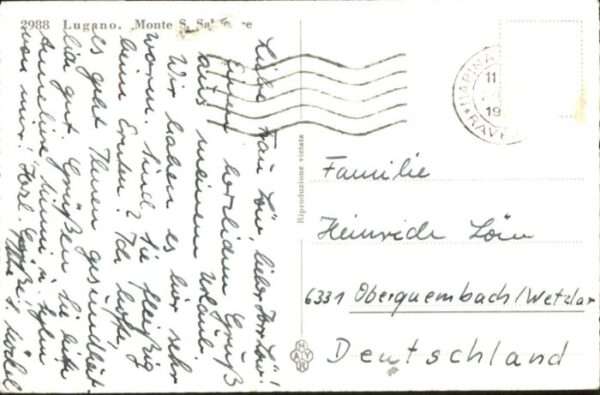 2988 Lugano. Monte S. Sal
Liebe Frau Löw, lieber Herr Löw!
Einen herzlichen Gruß
aus meinem Urlaub
Wir haben es hier sehr
warm. Sind Sie fleißig
beim Ernten? Ich hoffe,
es geht Ihnen gesundheit-
lich gut. Grüßen Sie bitte
Anneliese
von mir! Herzl. Grüße
Ihre
Riproduzione vietata
Familie
Heinrich Löw
6331 Oberquembach/Wetzlar
Deutschland
11
19
MARINA
RAV